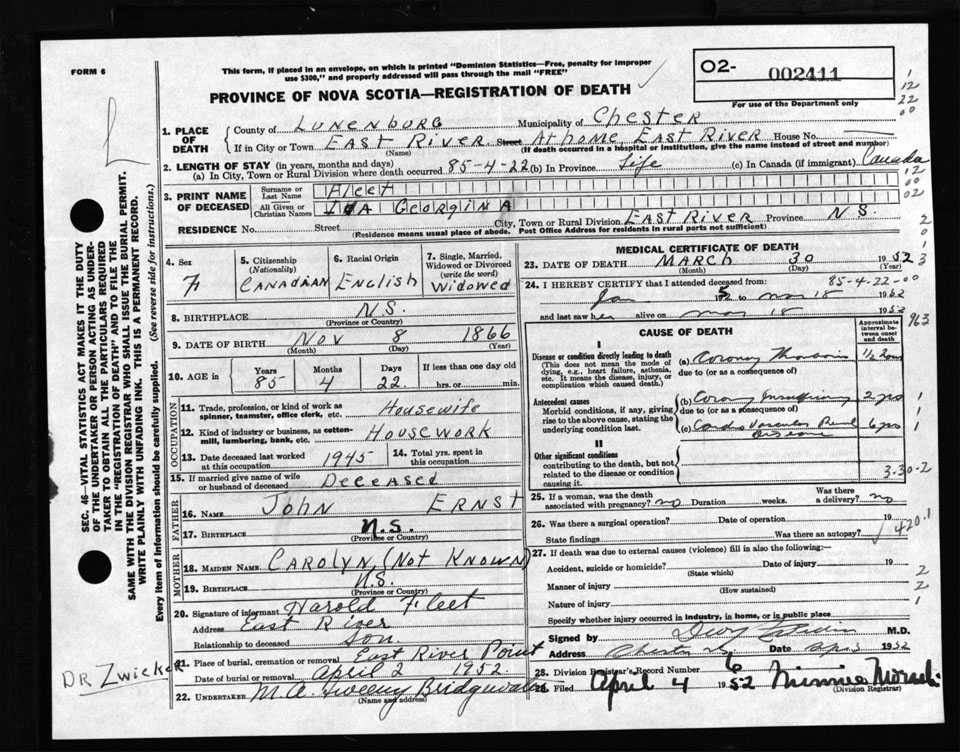 FORM 6
This form, if placed in an envelope, on which is printed "Dominion Statistics—Free, penalty for improper
use $300," and properly addressed will pass through the mail "FREE"
O2- 002411
For use of the Department only
PROVINCE OF NOVA SCOTIA—REGISTRATION OF DEATH
1. PLACE OF DEATH { County of LUNENBURG Municipality of CHESTER
If in City or Town EAST RIVER Street At home EAST RIVER House No.
(Name) (If death occurred in a hospital or institution, give the name instead of street and number)
2. LENGTH OF STAY (in years, months and days)
(a) In City, Town or Rural Division where death occurred 85-4-22 (b) In Province Life (c) In Canada (if immigrant) Canada
3. PRINT NAME OF DECEASED { Surname or Last Name Fleet
All Given or Christian Names IDA GEORGINA
RESIDENCE No. Street City, Town or Rural Division EAST RIVER Province N.S.
(Residence means usual place of abode. Post Office Address for residents in rural parts not sufficient)
4. Sex F
5. Citizenship (Nationality) CANADIAN
6. Racial Origin ENGLISH
7. Single, Married, Widowed or Divorced (write the word) Widowed
8. BIRTHPLACE N.S.
(Province or Country)
9. DATE OF BIRTH NOV 8 1866
(Month) (Day) (Year)
10. AGE in Years 85 Months 4 Days 22 If less than one day old hrs. or min.
OCCUPATION
11. Trade, profession, or kind of work as spinner, teamster, office clerk, etc. Housewife
12. Kind of industry or business, as cotton-mill, lumbering, bank, etc. HOUSEWORK
13. Date deceased last worked at this occupation 1945
14. Total yrs. spent in this occupation
15. If married give name of wife or husband of deceased DECEASED
FATHER
16. NAME JOHN ERNST
17. BIRTHPLACE N.S.
(Province or Country)
MOTHER
18. MAIDEN NAME CAROLYN, (NOT KNOWN)
19. BIRTHPLACE N.S.
(Province or Country)
20. Signature of informant Harold Fleet
Address East River
Relationship to deceased Son.
21. Place of burial, cremation or removal East River Point
Date of burial or removal April 2 1952.
22. UNDERTAKER M.A. Sweeny Bridgewater
(Name and address)
MEDICAL CERTIFICATE OF DEATH
23. DATE OF DEATH MARCH 30 1952
(Month) (Day) (Year)
24. I HEREBY CERTIFY that I attended deceased from: 85-4-22-
Jan 5 to mar 18 1952
and last saw her alive on mar 18 1952
CAUSE OF DEATH
Approximate interval between onset and death
I
Disease or condition directly leading to death
(This does not mean the mode of dying, e.g., heart failure, asthenia, etc. It means the disease, injury, or complication which caused death.)
(a) Coronary Thrombosis 1/2 hour
due to (or as a consequence of)
Antecedent causes
Morbid conditions, if any, giving rise to the above cause, stating the underlying condition last.
(b) Coronary Insufficiency 2 yrs
due to (or as a consequence of)
(c) Cardio Vascular Renal Disease 6 yrs
II
Other significant conditions
contributing to the death, but not related to the disease or condition causing it.
3-30-2
25. If a woman, was the death associated with pregnancy? no Duration weeks. Was there a delivery? no
26. Was there a surgical operation? Date of operation 19
State findings Was there an autopsy?
420.1
27. If death was due to external causes (violence) fill in also the following:—
Accident, suicide or homicide? Date of injury 19
(State which)
Manner of injury
(How sustained)
Nature of injury
Specify whether injury occurred in industry, in home, or in public place
Signed by M.D.
Address Chester N.S. Date 1952
28. Division Registrar's Record Number 6
29. Filed April 4 1952 Minnie
(Division Registrar)
DR Zwicker
963
SEC. 46—VITAL STATISTICS ACT MAKES IT THE DUTY
OF THE UNDERTAKER OR PERSON ACTING AS UNDER-
TAKER TO OBTAIN ALL THE PARTICULARS REQUIRED
IN THE "REGISTRATION OF DEATH" AND TO FILE THE
SAME WITH THE DIVISION REGISTRAR WHO SHALL ISSUE THE BURIAL PERMIT.
WRITE PLAINLY WITH UNFADING INK. THIS IS A PERMANENT RECORD.
Every item of information should be carefully supplied. (See reverse side for instructions.)